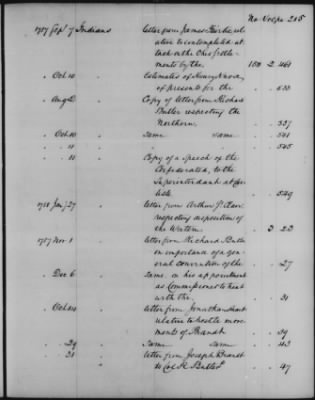 No Vol pa 205
1787 Sep 7 Indians letter from James
relative to contemplated at
tack on the Ohio Settle
ments by the. 150 2 461
" Oct 10 " Estimates of Henry Knox,
of presents for the " " 533
" Aug 2 " Copy of letter from Richard
Butler respecting the
Northern. " " 537
" Oct 10 " Same same " " 541
" " 11 " " " " " 545
" " 11 " Copy of a Speech of the
Confederated, to the
Superintendant at Car
lisle " " 549
1788 Jany 27 " letter from Arthur St Clair
respecting disposition of
the Western " 3 23
1787 Nov 1 " letter from Richard Butler
on importance of a gen
eral convention of the " " 27
" Dec 6 " Same, on his appointment
as Commissioner to treat
with the. " " 31
" Oct " letter from Jonathan Heart
relative to hostile move
ments of Brandt " " 39
" " 29 " Same same " " 43
" " 31 " letter from Joseph Brandt
to Col R Butler " " 47